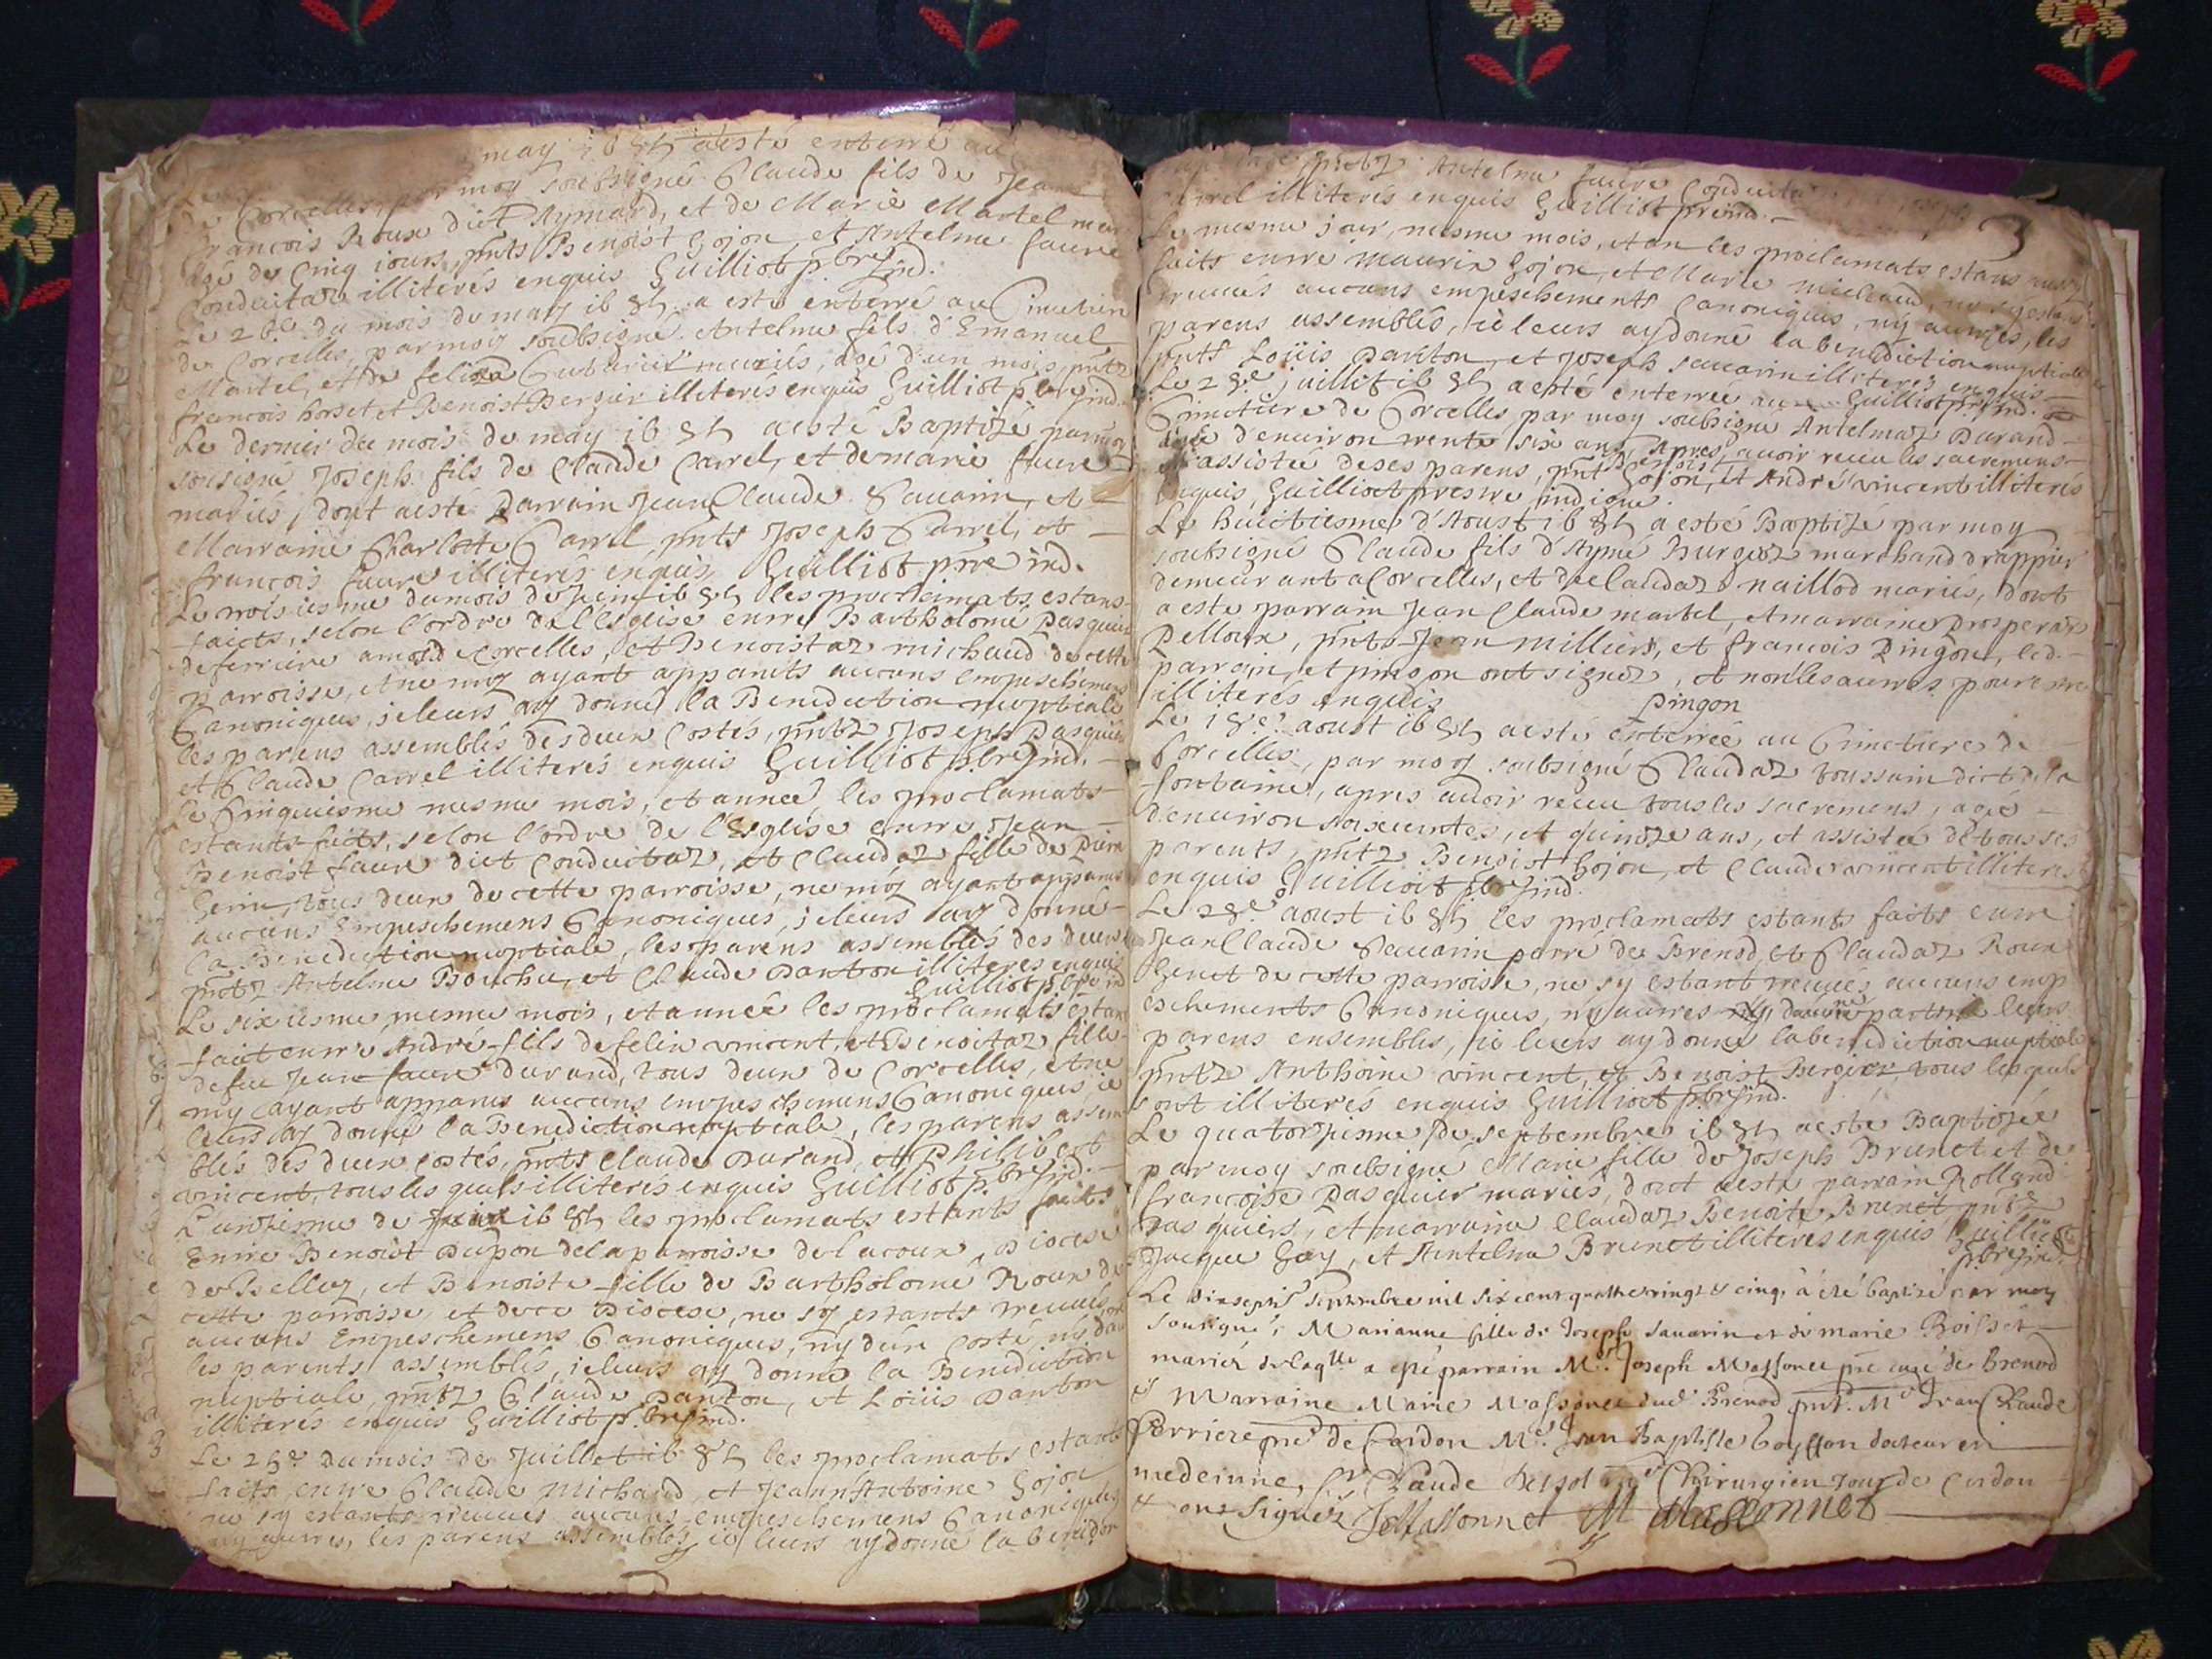 may 1685 a esté enterré au
de Corcelles, par moy soubsigné Claude fils de Jean
françois Roux dict Aymard, et de Marie Martel mar
agé de Cinq iours, pnts Benoist Gojon, et Antelme faure
Conduitaz illiterés enquis Guilliot pbre Ind.
Le 26e du mois de may 1685 a esté enterré au Cimetiere
de Corcelles, par moy soubsigné Antelme fils d'Emanuel
Martel, et de mariés, agé d'un mois, pntz
francois et Benoist Bergier illiterés enquis Guilliot pbre Ind.
Le dernier du mois de may 1685 a esté Baptizé par moy
sousigné Joseph fils de Claude Carrel, et de marie faure
mariés, dont a esté Parrain Jean Claude Sauarin, et
Marraine Charlotte Carrel pnts Joseph Carrel, et
francois faure illiterés enquis, Guilliot pre ind.
Le troisiesme du mois de Juin 1685 les proclamats estans
faicts, selon l'ordre de l'Esglise entre Bartholomé Pasquier
de ferriere Corcelles, et Benoistaz michaud de cette
parroisse, et ne moy ayant apparuts aucuns empeschemens
Canoniques, ie leurs ay donné la Benediction nuptiale
les parens assemblés des deux Costés, pntz Joseph Pasquier
et Claude Carrel illiterés enquis Guilliot pbre Ind.
Le Cinquiesme mesme mois, et année les proclamats
estants faits, selon l'ordre de l'Esglise entre Jean
Benoist faure dict Conduitaz, et Claudaz fille de Pierre
tous deux de cette parroisse, ne moy ayant apparus
aucuns Empeschemens Canoniques, ie leurs ay donné
la Benediction nuptiale, les parens assemblés des deux
pntz Antelme Bouchu, et Claude Danton illiterés enquis
Guilliot pbre ind
Le sixiesme mesme mois, et année les proclamats estans
faict entre André fils de felix vincent, et Benoitaz fille
de feu Jean faure durand, tous deux de Corcelles, et ne
my ayant apparus aucuns empeschemens Canoniques ie
leurs ay donné la Benediction nuptiale, les parens assem
blés des deux costés, pnts Claude Durand, et Philibert
vincent, tous les quels illiterés enquis Guilliot pbre Ind.
L'unziesme de 1685 les proclamats estants faits
Entre Benoist Dupon de la parroisse de Lacoux, Diocese
de Belley, et Benoiste fille de Bartholomé Roux de
cette parroisse, et de ce Diocese, ne sy estants treuués
aucuns Empeschemens Canoniques, ny d'un costé, ny d'au
les parents assemblés, ie leurs ay donné la Benediction
nuptiale, pntz Claude Danton, et Loüis Danton
illiterés enquis Guilliot pbre Ind.
Le 25e du mois de Juillet 1685 les proclamats estants
faits entre Claude Michaud, et Jeann'Antoine Gojon
ne sy estants treuués aucuns empeschemens Canoniques
ny autres, les parens assemblés, ie leurs ay donné la benidon
pntz Antelme faure Conduitaz
Carrel illiterés enquis Guilliot pre ind.
3
Le mesme jour, mesme mois, et an les proclamats estans
faits entre Maurix Gojon, et Marie michaud, ne sy estans
treuués aucuns empeschements Canoniques, ny autres, les
parens assemblés, ie leurs ay donné la benediction nuptiale
pnts Loüis Danton, et Joseph sauarin illiterés enquis
Guilliot pre Ind.
Le 28e juillet 1685 a esté enterrée au
Cimetiere de Corcelles par moy soubsigné Antelmaz Durand
agée d'enuiron trente six ans, Apres auoir receu les sacremens
et assistée de ses parens, pnt Benoist Gojon, et André vincent illiterés
enquis, Guilliot prestre indigne.
Le huictiesme d'Aoust 1685 a esté Baptizé par moy
soubsigné Claude fils d'Aymé Burgoz marchand drappier
demeurant a Corcelles, et de Claudaz naillod mariés, dont
a esté parrain Jean Claude martel, et marraine Prosperaz
Pelloux, pnts Jean Milliers, et francois Pingon, led.
parrain, et pingon ont signéz, et non les autres pour estre
illiterés enquis
Pingon
Le 18e aoust 1685 a esté enterrée au Cimetiere de
Corcelles, par moy soubsigné Claudaz toussain dict de la
fontaine, apres auoir receu tous les sacremens, agée
d'enuiron soixuntes, et quinze ans, et assistée de tous ses
parents, pntz Benoist Gojon, et Claude vincent illiterés
enquis Guilliot pbre Ind.
Le 28e aoust 1685 les proclamats estants faits entre
Jean Claude Sauarin parre de Brenod, et Claudaz Roux
Genet de cette parroisse, ne sy estant treuués aucuns emp
eschements Canoniques, ny autres ny d'autre part leurs
parens ensembles, ie leurs ay donné la benediction nuptiale
pntz Anthoine vincent, et Benoist Bergier, tous lesquels
sont illiterés enquis Guilliot pbre Ind.
Le quatorziesme de septembre 1685 a esté Baptizée
par moy soubsigné Marie fille de Joseph Brunet et de
françoise Pasquier mariés, dont a esté parrain Rolland
Pasquiers, et marraine Claudaz Benoite Brunet pntz
Jacque Gay, et Antelme Brunet illiterés enquis Guilliot
pbre Ind.
Le dixsept septembre mil six cent quattre vingt & cinq, à été baptizé par moy
sousigné, Marianne fille de Joseph sauarin et de marie Boisset
mariés de laqlle a esté parrain Mr Joseph Massonet pre curé de Brenod
& Marraine Marie Massonet dud Brenod pnt. Mr Jean Claude
Perriere pre de Cerdon Mr Jean Baptiste docteur en
medecinne, Sr Claude Me Chirurgien tous de Cerdon
& ont signéz J Massonnet M Massonnet